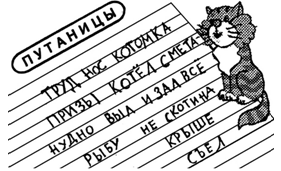 ПУТАНИЦЫ
ТРУД НОС КОТОМКА
ПРИЗЫ КОТЁЛ СМЕТА
НУДНО ВЫЛ И ЗАД ВСЕ
РЫБУ НЕ СКОТИНА
КРЫШЕ
СЪЕЛ